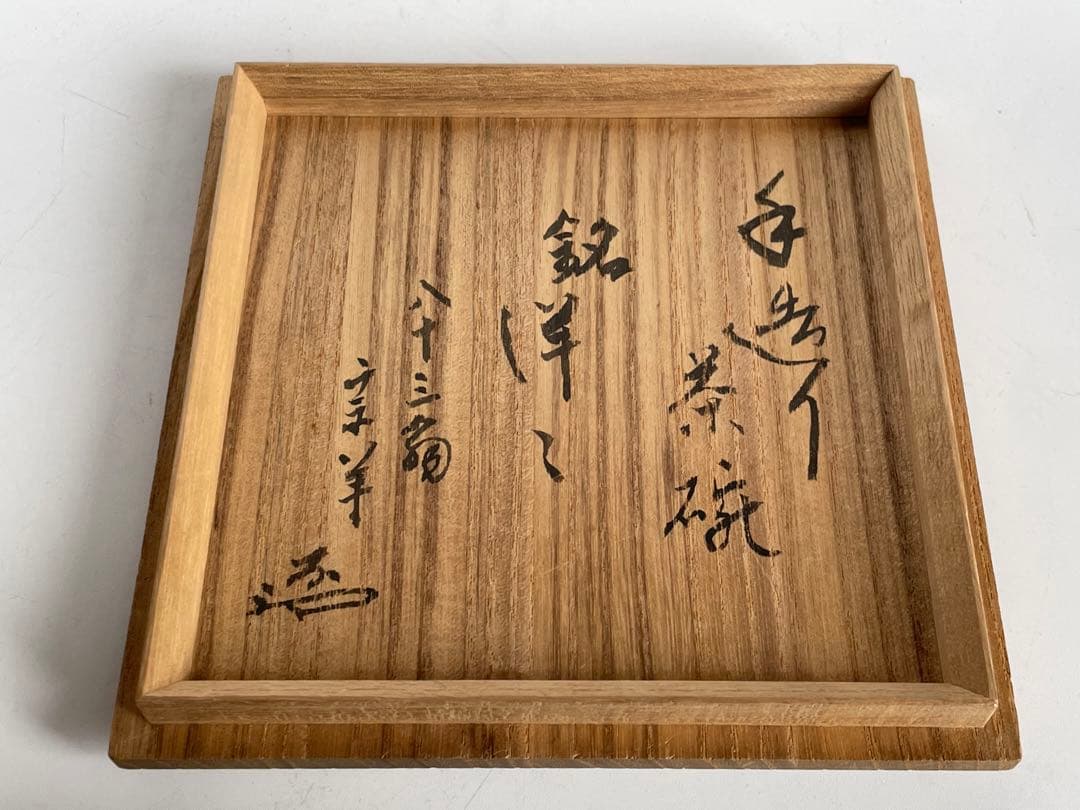 手造り
茶碗
銘
洋々
八十三翁
宗半